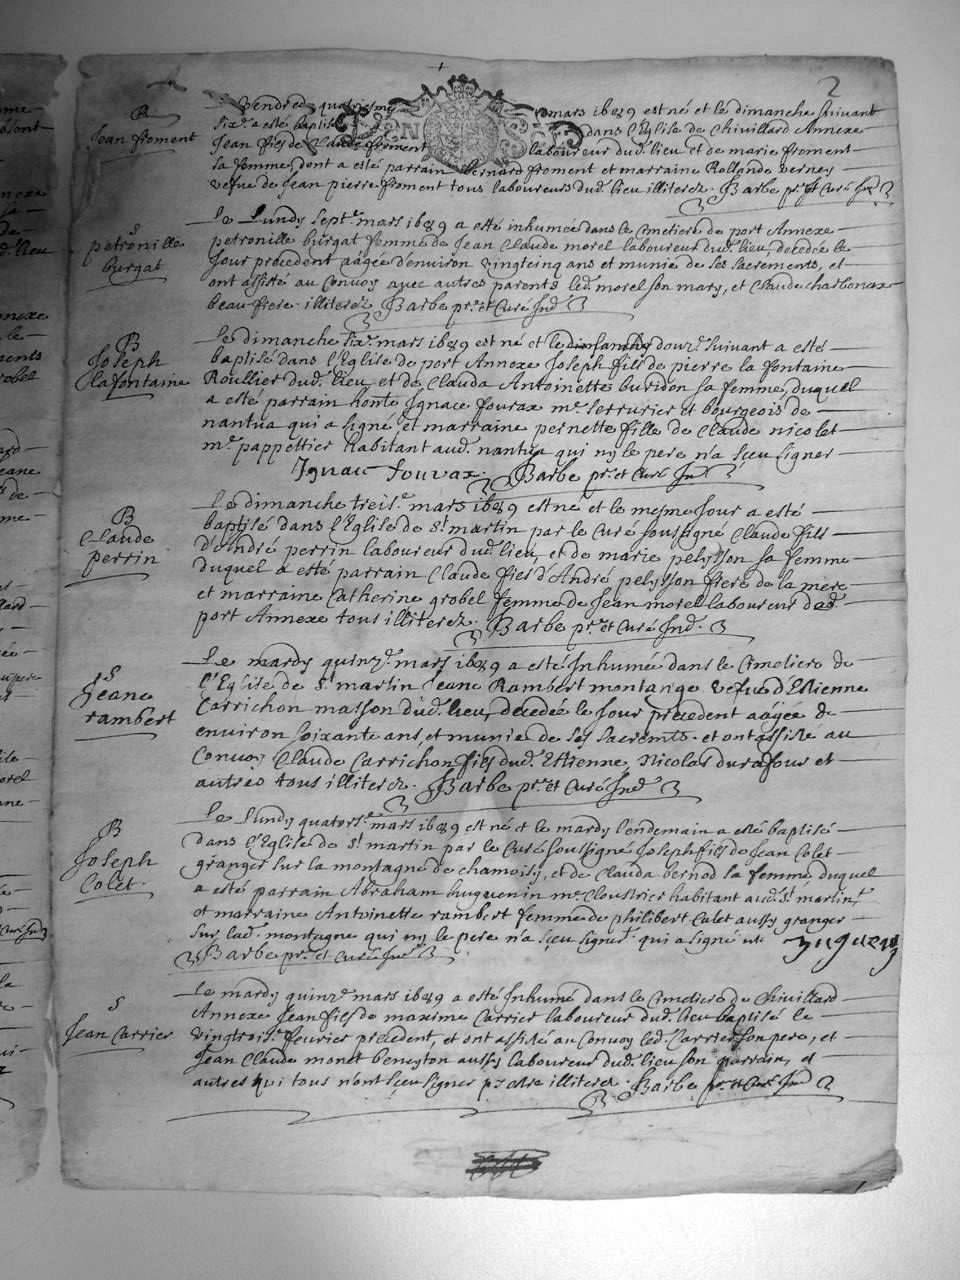 2
B
Jean froment
Vendredy quatriesme mars 1689 est né et le dimanche suivant
six.e a esté baptisé dans l'Eglise de Chivillard Annexe
Jean fils de Claude froment laboureur dud. lieu et de marie froment
sa femme, dont a esté parrain bernard froment et marraine Rollande verney
vefue de Jean pierre froment tous laboureurs dud. lieu illiterez. Barbe pr. et Curé Ind
S
petronille
burgat
Le Lundy sept.e mars 1689 a esté inhumée dans le Cmetiere de port Annexe
petronille burgat femme de Jean Claude morel laboureur dud. lieu, decedée le
Jour precedent aâgée d'environ vingtcinq ans et munie de ses sacrements, et
ont assisté au Convoy avec autres parents led. morel son mary, et Claude charbonax
beau-frere illiterez Barbe pr. et Curé Ind
B
Joseph
lafontaine
Le dimanche six.e mars 1689 est né et le douz.e suivant a esté
baptisé dans l'Eglise de port Annexe Joseph fils de pierre la fontaine
Roullier dud. lieu et de Clauda Antoinette buridon sa femme, duquel
a esté parrain Ignace fourax m.e serrurier et bourgeois de
nantua qui a signé et marraine pernette fille de Claude nicolet
m.e pappettier habitant aud. nantua qui ny le pere n'a sceu signer
Ignace fouvax. Barbe pr. et Curé Ind
B
Claude
perrin
Le dimanche treis.e mars 1689 est né et le mesme Jour a esté
baptisé dans l'Eglise de St. martin par le Curé soussigné Claude fils
d'andré perrin laboureur dud. lieu, et de marie pelysson sa femme
duquel a esté parrain Claude fils d'André pelysson frere de la mere
et marraine Catherine grobel femme de Jean morel laboureur
port Annexe tous illiterez. Barbe pr. et Curé Ind.
S
Jeane
rambert
Le mardy quinz.e mars 1689 a esté Inhumé dans le Cmetiere de
l'Eglise de St. martin Jeane Rambert montange vefue d'Etienne
Carrichon masson dud. lieu, decedée le Jour precedent aâgée de
environ soixante ans et munie de ses sacremts. et ont assisté au
Convoy Claude Carrichon fils dud. Etienne, Nicolas durafour et
autres tous illiterez. Barbe pr. et Curé Ind
B
Joseph
Colet.
Le Lundy quators.e mars 1689 est né et le mardy lendemain a esté baptisé
dans l'Eglise de St. martin par le Curé soussigné Joseph fils de Jean Colet
granger sur la montagne de chamoisy, et de Clauda bernod sa femme duquel
a esté parrain Abraham huguenin m.e Cloustrier habitant aud. St. martin,
et marraine Antoinette rambert femme de philibert Calet aussy granger
sur lad. montagne qui ny le pere n'a sceu signer qui a signé
Barbe pr. et Curé Ind
S
Jean Carrier
Le mardy quinz.e mars 1689 a esté Inhumé dans le Cmetiere de Chivillard
Annexe Jean fils de maxime Carrier laboureur dud. lieu baptisé le
vingtrois.e fevrier precedent, et ont assisté au Convoy led. Carrier son pere, et
Jean Claude monet beneyton aussy laboureur dud. lieu son parrain, et
autres qui tous n'ont sceu signer illiterez. Barbe pr. et Curé Ind